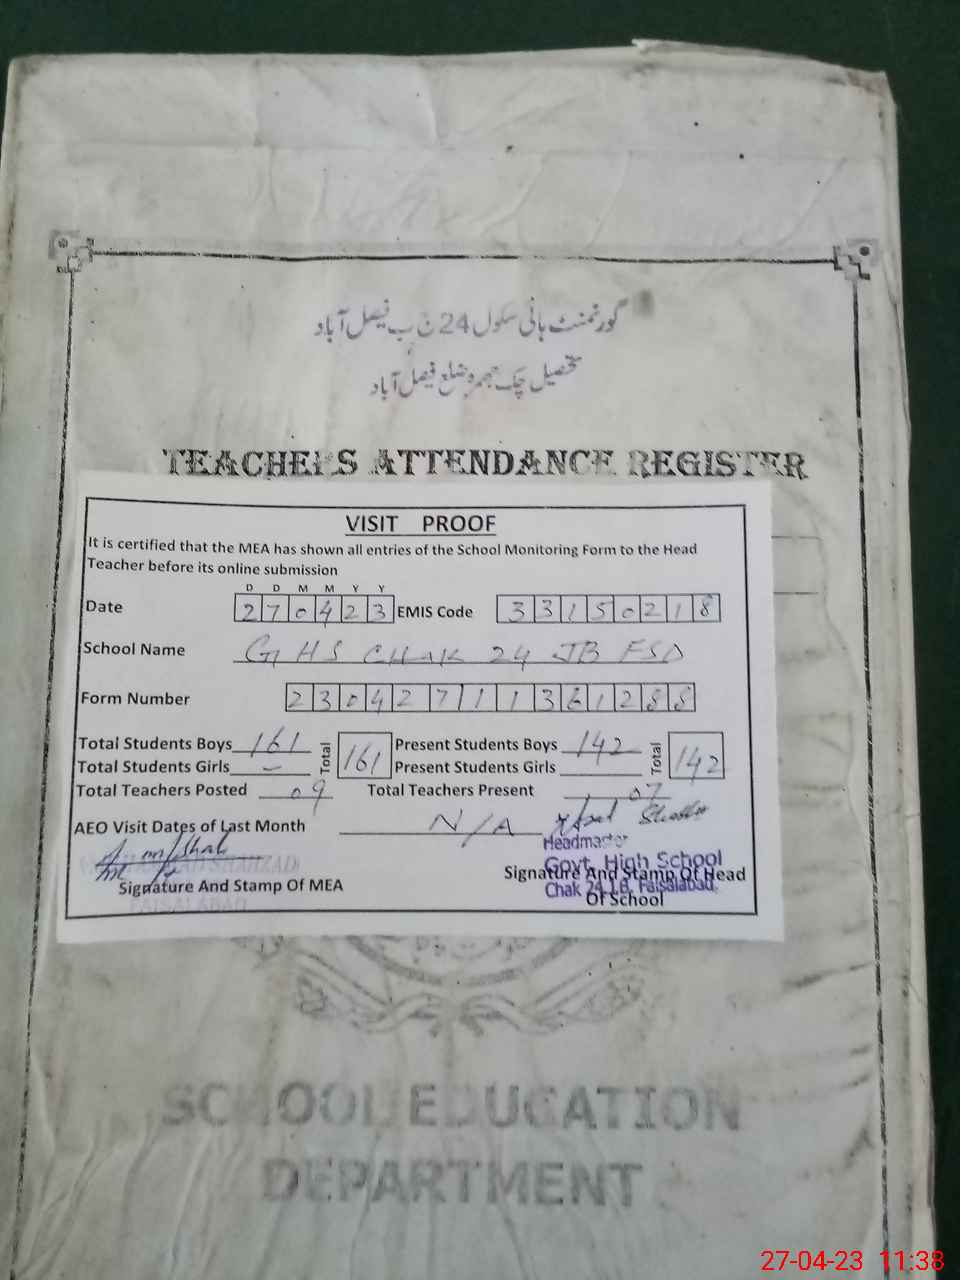 گورنمنٹ ہائی سکول 24 ج ب فیصل آباد
تحصیل چک جھمرہ ضلع فیصل آباد
TEACHERS ATTENDANCE REGISTER
VISIT PROOF
It is certified that the MEA has shown all entries of the School Monitoring Form to the Head
Teacher before its online submission
D D M M Y Y
Date 270423 EMIS Code 33150218
School Name GHS CHAK 24 JB FSD
Form Number 23042711361288
Total Students Boys 161 Total 161 Present Students Boys 142 Total 142
Total Students Girls – Present Students Girls
Total Teachers Posted 09 Total Teachers Present 07
AEO Visit Dates of Last Month N/A
Headmaster
Govt. High School
Chak 24 J.B, Faisalabad.
SHAHZAD
FAISALABAD
Signature And Stamp Of MEA
Signature And Stamp Of Head
Of School
SCHOOL EDUCATION
DEPARTMENT
27-04-23 11:38